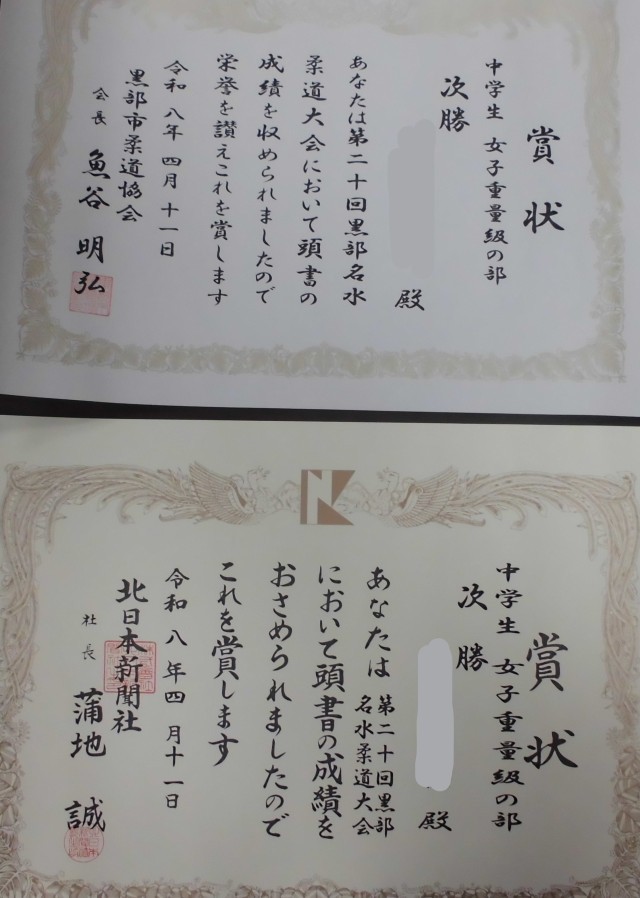 賞状
中学生 女子重量級の部
次勝
殿
あなたは第二十回黒部名水
柔道大会において頭書の
成績を収められましたので
栄誉を讃えこれを賞します
令和八年四月十一日
黒部市柔道協会
会長 魚谷明弘
賞状
中学生 女子重量級の部
次勝
殿
あなたは第二十回黒部
名水柔道大会
において頭書の成績を
おさめられましたので
これを賞します
令和八年四月十一日
北日本新聞社
社長 蒲地誠